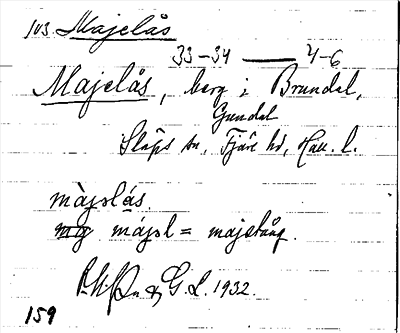 103. Majelås
33–34 — 4–6
Majelås, berg i Brundal,
Gundal
Släps sn, Fjäre hd, Hall. l.
màjəlás.
májəl = majstång.
& G. L. 1932.
159